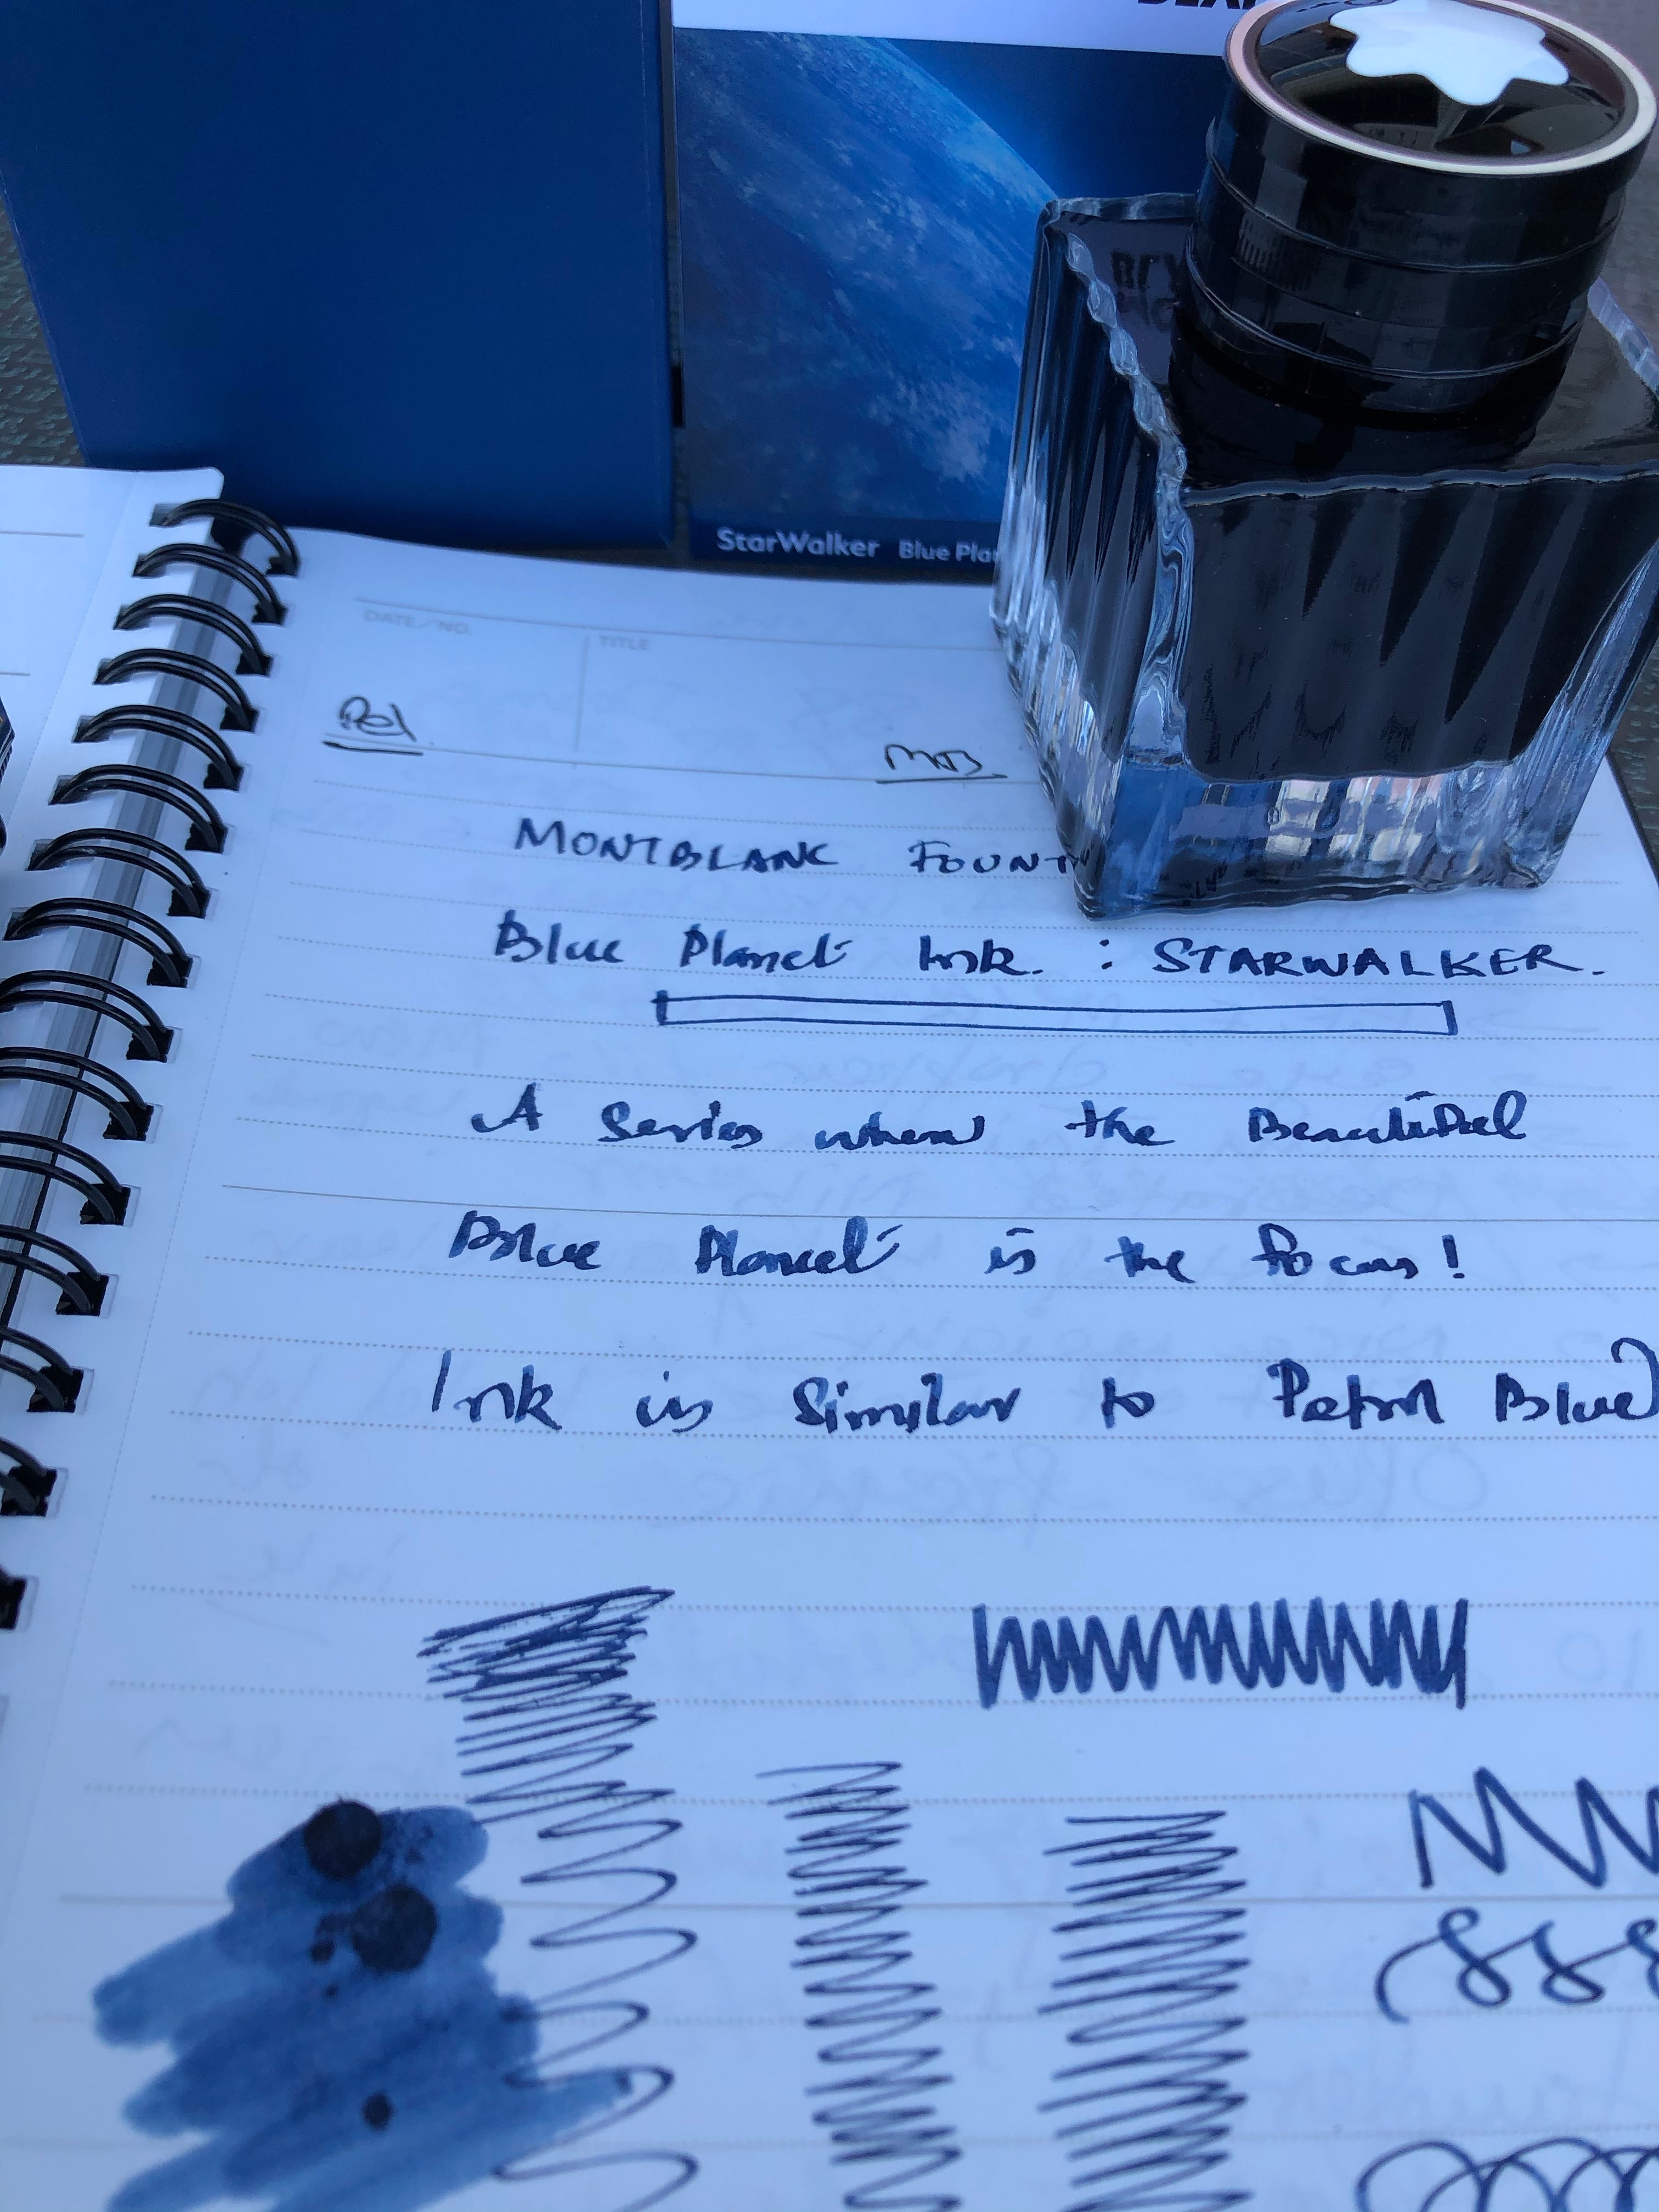 StarWalker Blue Pla
DATE/NO. TITLE
Pel MB
MONTBLANC FOUNT
Blue Planet Ink. : STARWALKER.
A Series where the Beautiful
Blue Planet is the focus!
Ink is Similar to Petrol Blue